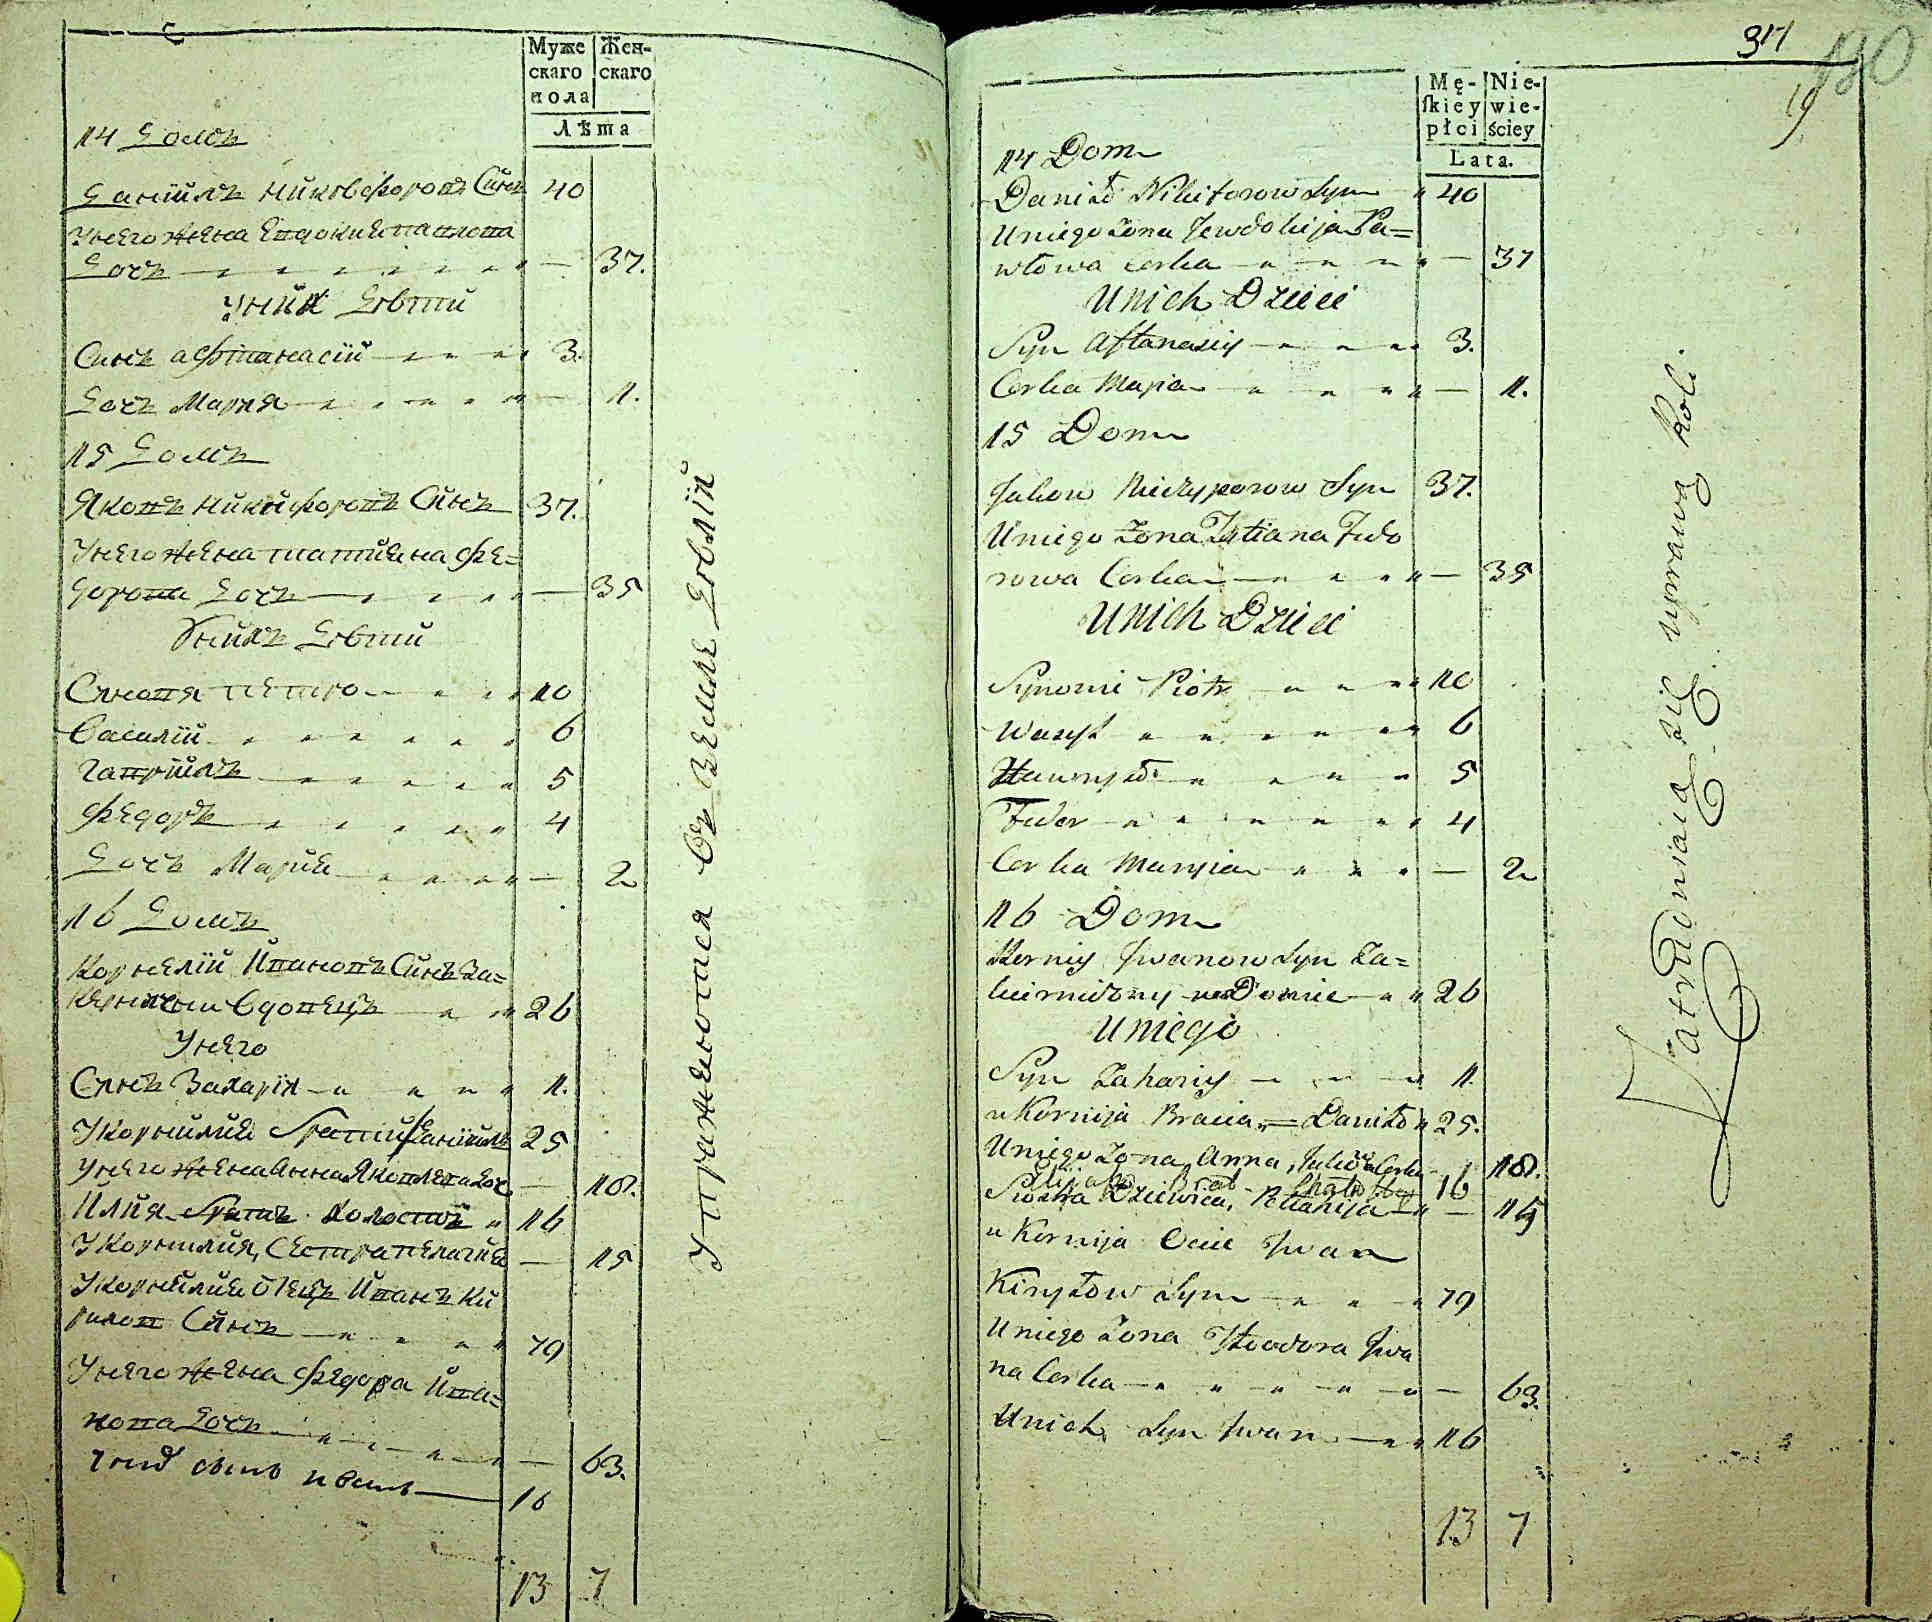 Муже
скаго
пола
Жен-
скаго
Лѣта
14 Домъ
Данїилъ Никифоровъ Синъ 40
Унего жена Евдокия павлова
Дочъ — 37.
Унихъ Дѣти
Синъ афтанасїй 3.
Дочъ Мария — 1.
15 Домъ
Яковъ никифоровъ Синъ 37.
Унего жена татияна Фе=
дорова Дочъ — 35
Унихъ Дѣти
Синовя петро 10
Василїй 6
гаврйилъ 5
Федоръ 4
Дочъ Мария — 2
16 Домъ
Корнелїй Ивановъ Синъ За=
Вдовецъ 26
Унего
Синъ Захария 1.
Укорнилия братия Данїилъ 25
Унего жена Анна Яковлева доч — 18.
Илия братъ холостий 16
Укорнилия, Сестра пелагия — 15
Укорнилия отецъ Иванъ Ки
рилов Синъ 79
Унего жена Федора Ива=
нова Дочъ — 63.
сынъ иванъ — 16
13 7
Упражнюются въ Земле Дѣлїй
317
130
19
Mę-
skiey
płci
Nie-
wie-
ściey
Lata.
14 Dom
Daniło Nikiforow Syn 40
Uniego Zona Jewdokija Pa=
włowa Corka — 37
Unich Dzieci
Syn Aftanasiy 3.
Corka Maria — 1.
15 Dom
Jakow Niczyporow Syn 37.
Uniego Zona Tatiana Fedo
rowa Corka — 35
Unich Dzieci
Synowie Piotr 10
Wasyl 6
Hawryło 5
Fedor 4
Corka Maryia — 2
16 Dom
Korniy Jwanow Syn Za=
26
Uniego
Syn Zahariy 1.
u Kornija Bracia = Daniło 25.
Uniego Zona Anna, Jakowa Corka 18.
Ilija Brat 16
Siostra Dziewica, Pełahija — 15
u Kornija Ociec Jwan
Kiryłow Syn 79
Uniego Zona Theodora Jwa
na Corka — 63.
Unich Syn Jwan — 16
13 7
Zatrudniaią się uprawą Roli.